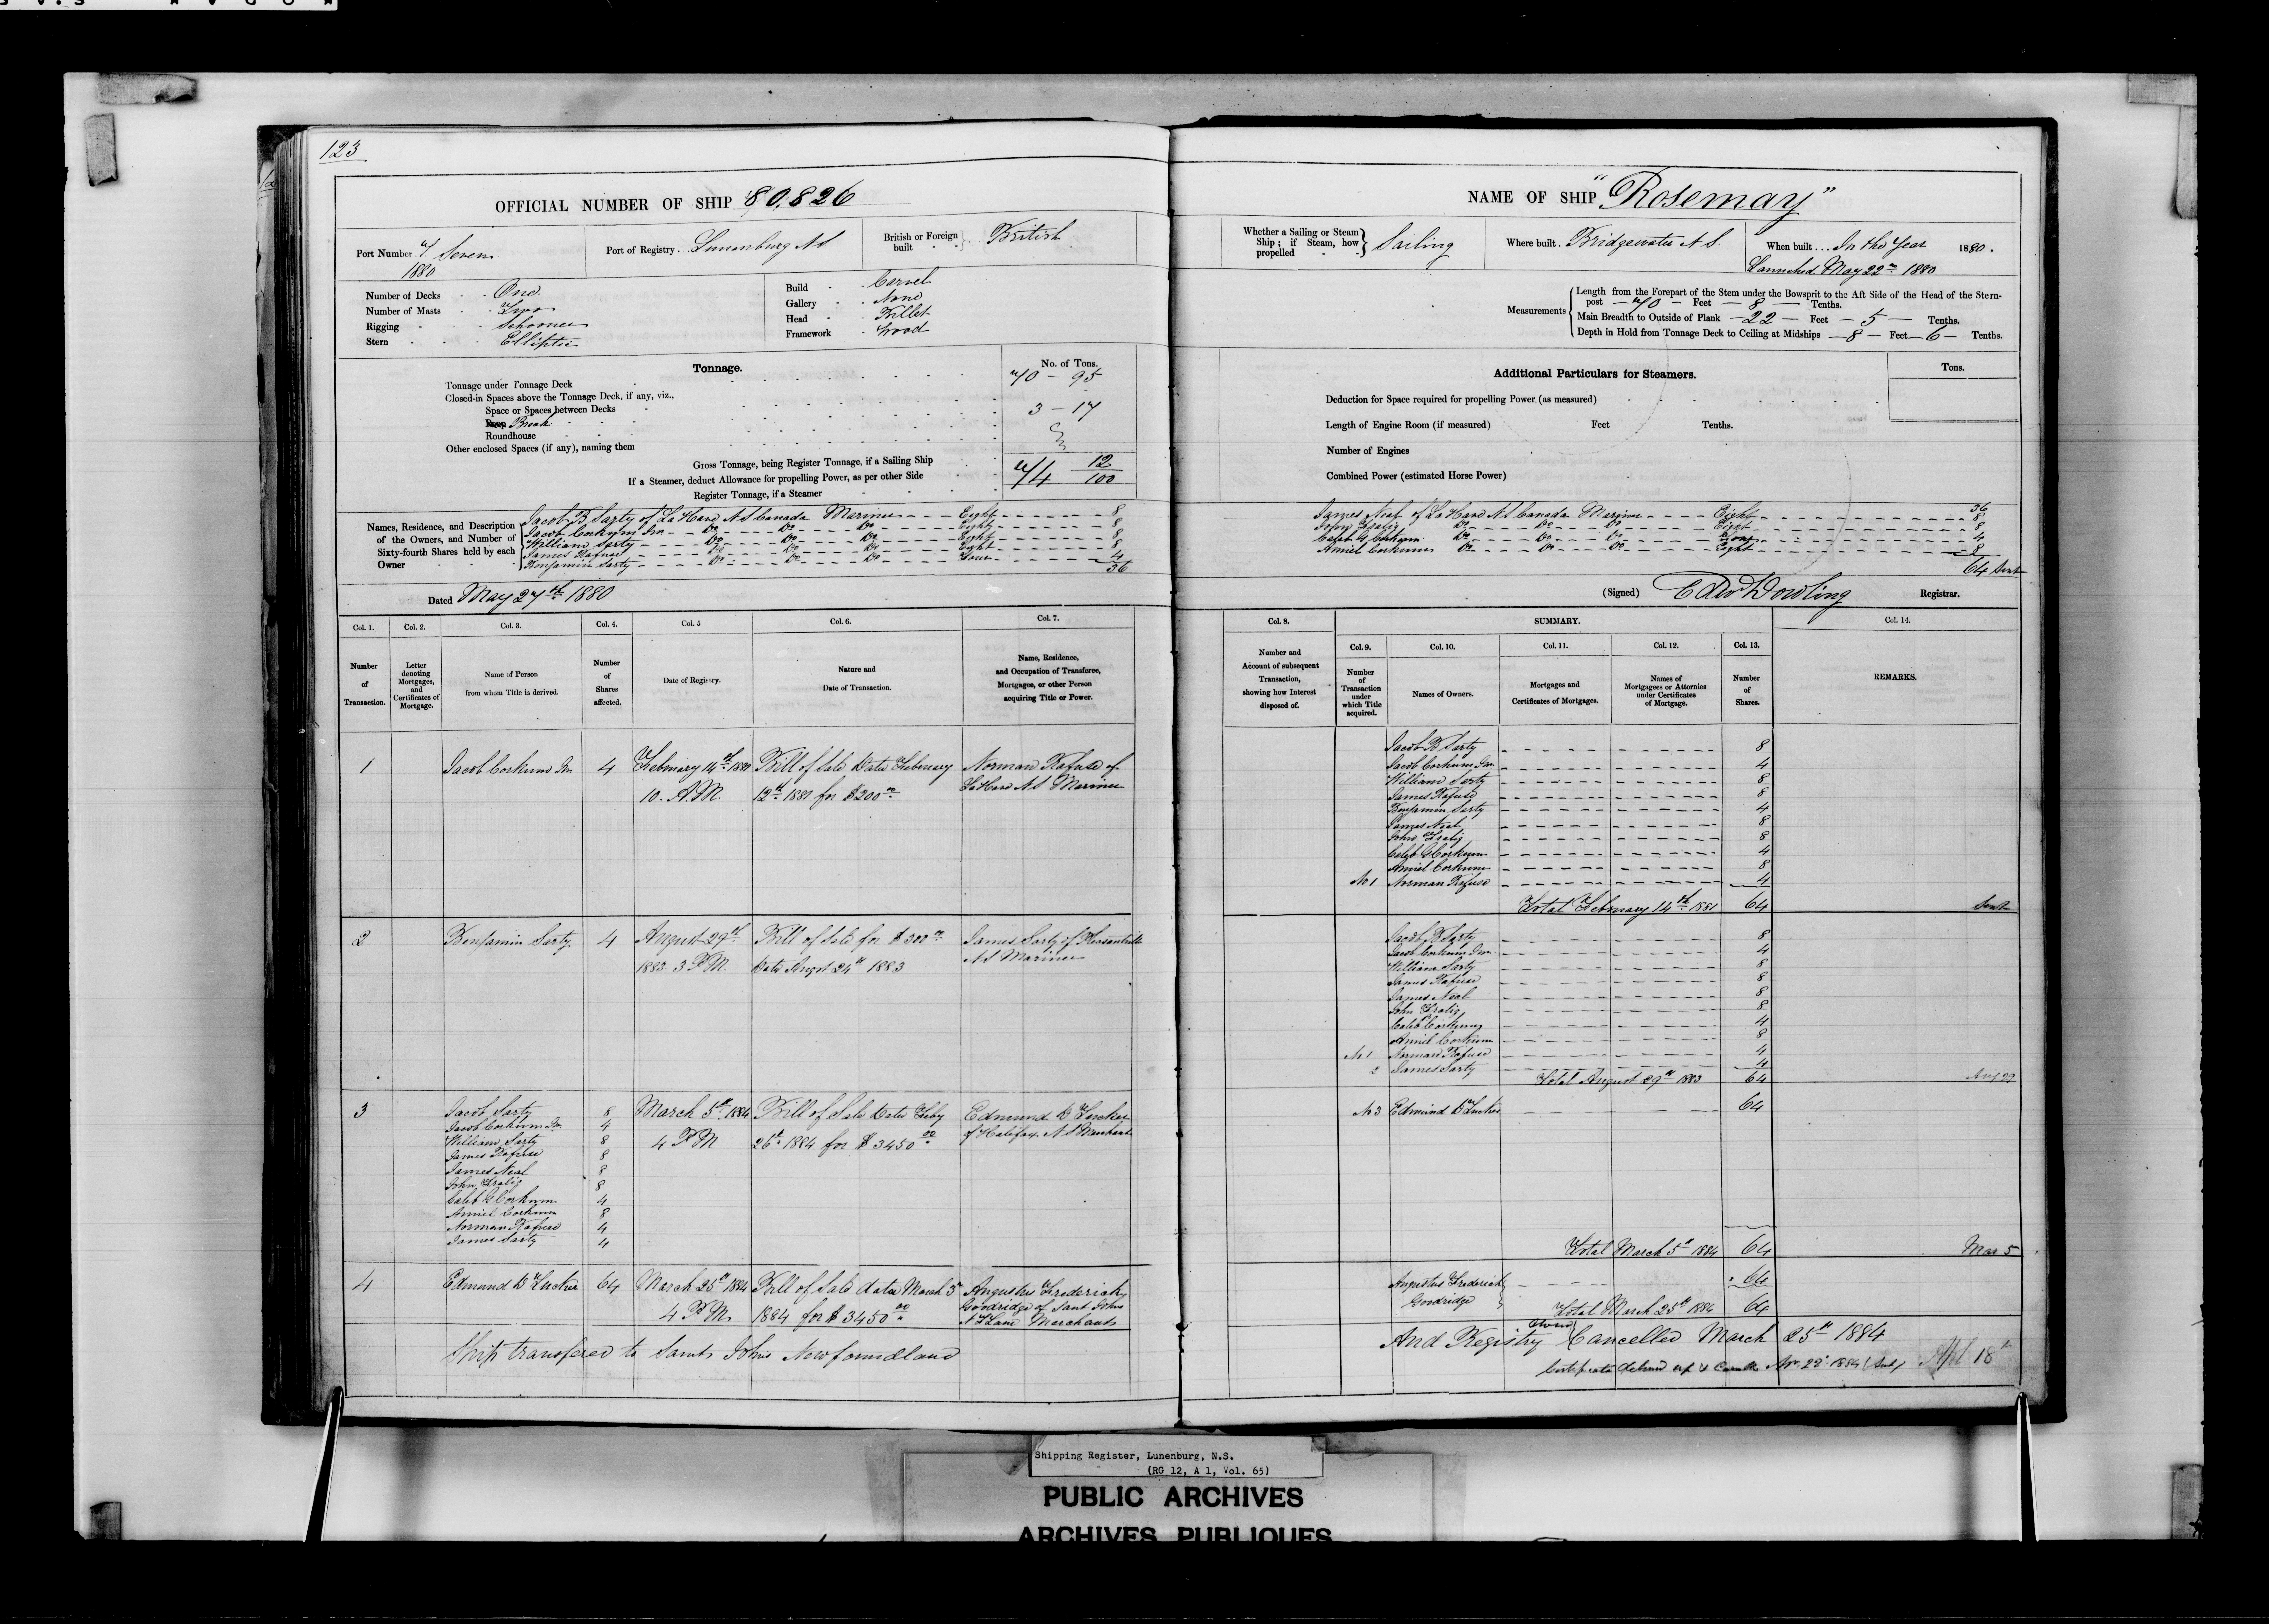 123
OFFICIAL NUMBER OF SHIP 80,826
Port Number 7. Seven
1880
Port of Registry. Lunenburg N S
British or Foreign built
British
Number of Decks One
Number of Masts Two
Rigging Schooner
Stern Elliptic
Build Carvel
Gallery None
Head Billet
Framework Wood
Tonnage.
No. of Tons.
Tonnage under Tonnage Deck 70 - 95
Closed-in Spaces above the Tonnage Deck, if any, viz.,
Space or Spaces between Decks 3 - 17
Poop Break
Roundhouse
Other enclosed Spaces (if any), naming them
Gross Tonnage, being Register Tonnage, if a Sailing Ship 74 12/100
If a Steamer, deduct Allowance for propelling Power, as per other Side
Register Tonnage, if a Steamer
Names, Residence, and Description of the Owners, and Number of Sixty-fourth Shares held by each Owner
Jacob B Sarty of La Have N S Canada Mariner Eight 8
Jacob Corkum Jnr Do Do Do Eight 8
William Sarty Do Do Do Eight 8
James Rafuse Do Do Do Eight 8
Benjamin Sarty Do Do Do Four 4
36
Dated May 27th 1880
Col. 1. Col. 2. Col. 3. Col. 4. Col. 5 Col. 6. Col. 7.
Number of Transaction.
Letter denoting Mortgages, and Certificates of Mortgage.
Name of Person from whom Title is derived.
Number of Shares affected.
Date of Registry.
Nature and Date of Transaction.
Name, Residence, and Occupation of Transferee, Mortgagee, or other Person acquiring Title or Power.
1 Jacob Corkum Jnr 4 February 14th 1881 Bill of Sale Date February Norman Rafuse of
10. A.M. 12th 1881 for $200.00 LaHave N S Mariner
2 Benjamin Sarty 4 August 29th Bill of Sale for $300.00 James Sarty of
1883. 3 P.M. Date Augst 24th 1883 N S Mariner
3 Jacob Sarty 8 March 5th 1884 Bill of Sale Date Feby Edmund B Tucker
Jacob Corkum Jnr 4 4 P M 26th 1884 for $3450.00 of Halifax N S Merchant
William Sarty 8
James Rafuse 8
James Neal 8
John 8
Caleb G Corkum 4
Amiel Corkum 8
Norman Rafuse 4
James Sarty 4
4 Edmund B Tucker 64 March 25th 1884 Bill of Sale date March 5th Augustus Frederick
4 P M. 1884 for $3450.00 Goodridge of Saint Johns
N F Land Merchant
Ship transfered to Saint Johns Newfoundland
NAME OF SHIP "Rosemay"
Whether a Sailing or Steam Ship; if Steam, how propelled
Sailing
Where built. Bridgewater N S.
When built ... In the Year 1880.
Launched May 22nd 1880
Measurements
Length from the Forepart of the Stem under the Bowsprit to the Aft Side of the Head of the Stern-
post - 70 - Feet - 8 - Tenths.
Main Breadth to Outside of Plank - 22 - Feet - 5 - Tenths.
Depth in Hold from Tonnage Deck to Ceiling at Midships - 8 - Feet - 6 - Tenths.
Additional Particulars for Steamers.
Tons.
Deduction for Space required for propelling Power (as measured)
Length of Engine Room (if measured) Feet Tenths.
Number of Engines
Combined Power (estimated Horse Power)
36
James Neal of LaHave N S Canada Mariner Eight 8
John Do Do Do Eight 8
Caleb G Corkum Do Do Do Four 4
Amiel Corkum Do Do Do Eight 8
64 Sent
(Signed) Edw Dowling Registrar.
Col. 8. SUMMARY. Col. 14.
Col. 9. Col. 10. Col. 11. Col. 12. Col. 13.
Number and Account of subsequent Transaction, showing how Interest disposed of.
Number of Transaction under which Title acquired.
Names of Owners.
Mortgages and Certificates of Mortgages.
Names of Mortgagees or Attornies under Certificates of Mortgage.
Number of Shares.
REMARKS.
Jacob B Sarty 8
Jacob Corkum Jnr 4
William Sarty 8
James Rafuse 8
Benjamin Sarty 4
James Neal 8
John 8
Caleb G Corkum 4
Amiel Corkum 8
No 1 Norman Rafuse 4
Total February 14th 1881 64 Sent
Jacob B Sarty 8
Jacob Corkum Jnr 4
William Sarty 8
James Rafuse 8
James Neal 8
John 8
Caleb Corkum 4
Amiel Corkum 8
No 1 Norman Rafuse 4
2 James Sarty 4
Total August 29th 1883 64 Aug 29
No 3 Edmund B Tucker 64
Total March 5th 1884 64 Mar 5
Augustus Frederick 64
Goodridge
Total March 25th 1884 64
And Registry Cancelled March 25th 1884
Certificate delivered up & 1884 Apl 18th
Shipping Register, Lunenburg, N.S.
(RG 12, A 1, Vol. 65)
PUBLIC ARCHIVES
ARCHIVES PUBLIQUES